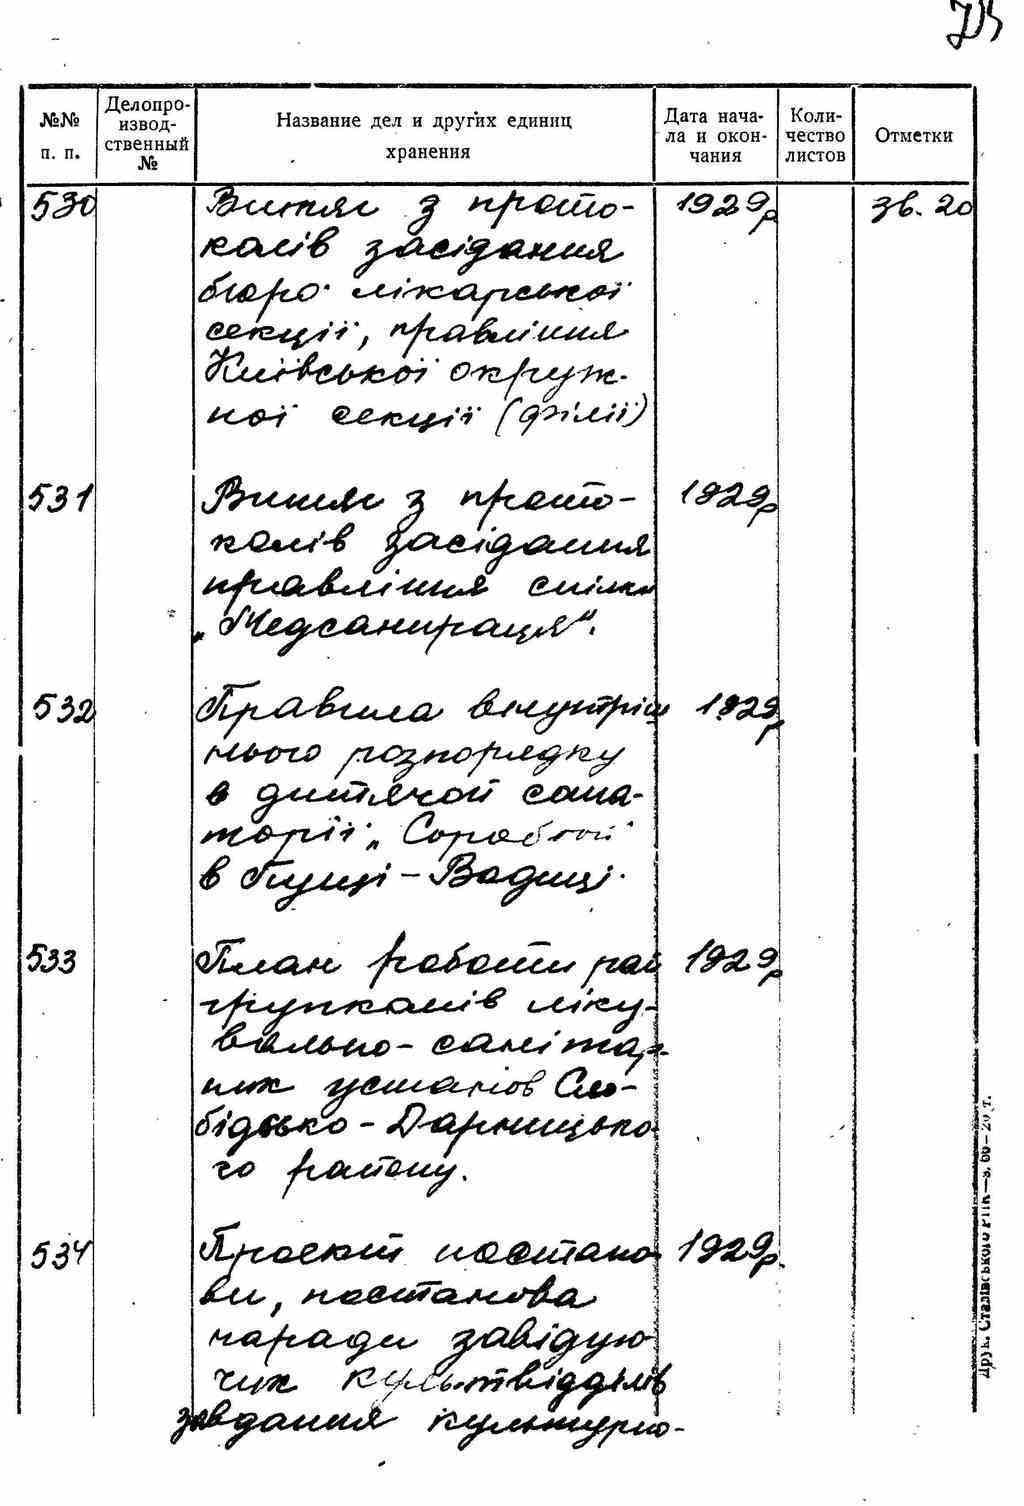 №№
п. п.
Делопро-
извод-
ственный
№
Название дел и других единиц
хранения
Дата нача-
ла и окон-
чания
Коли-
чество
листов
Отметки
530 Витяг з прото- 1929р зв. 20
колів засідання
бюро лікарської
секції, правління
Київської окруж-
ної секції (філії)
531 Витяг з прото- 1929р
колів засідання
правління спілки
„Медсанпраця".
532 Правила внутріш 1929р
нього розпорядку
в дитячой сана-
торії „
в Пущі-Водиці.
533 План роботи рай 1929р
групкомів ліку-
вально-санітар-
них установ Сло-
бідсько-Дарницько
го району.
534 Проект постано- 1929р.
ви, постанова
наради завідую-
чих культвідділів
завдання культурно-
Друк. Сталінського РПК—з.